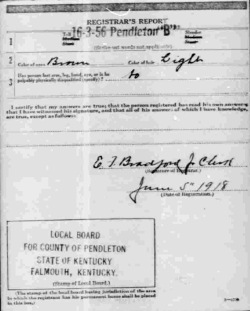 REGISTRAR'S REPORT
16-3-56 Pendleton "B"
1
2 Color of eyes Brown Color of hair Light
3 Has person lost arm, leg, hand, eye, or is he
palpably physically disqualified (specify)? No
I certify that my answers are true; that the person registered has read his own answers;
that I have witnessed his signature, and that all of his answers of which I have knowledge,
are true, except as follows:
E. T. Bradford Jr
(Signature of Registrar)
June 5" 1918
(Date of Registration)
LOCAL BOARD
FOR COUNTY OF PENDLETON
STATE OF KENTUCKY
FALMOUTH, KENTUCKY.
(Stamp of Local Board.)
(The stamp of the local board having jurisdiction of the area
in which the registrant has his permanent home shall be placed
in this box.)